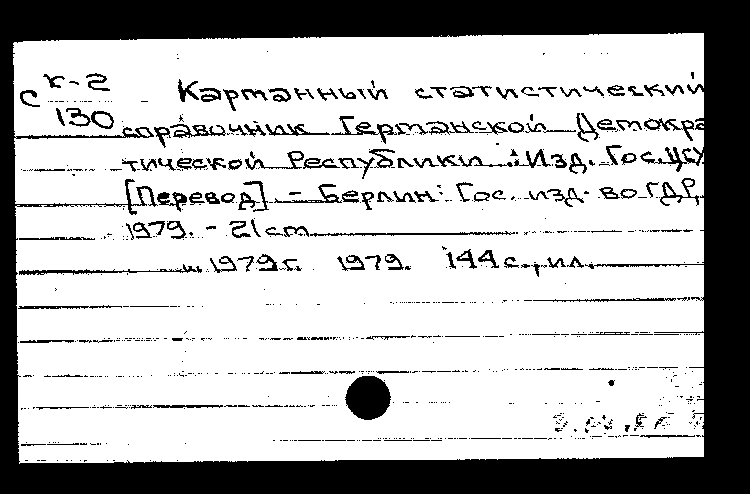 К-2
С Карманный статистический
130 справочник Германской Демокра
тической Республики : Изд. Гос. ЦСУ
[Перевод]. - Берлин: Гос. изд-во ГДР,
1979. - 21 cm
1979г. 1979. 144 с., ил.